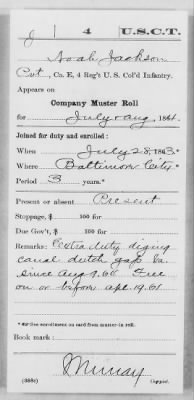 J 4 U.S.C.T.
Noah Jackson
Pvt, Co. E, 4 Reg't U. S. Col'd Infantry.
Appears on
Company Muster Roll
for July & Aug, 1864.
Joined for duty and enrolled:
When July 28, 1863.*
Where Baltimore City*
Period 3 years.*
Present or absent Present
Stoppage, $ 100 for
Due Gov't, $ 100 for
Remarks: Extra duty diging
canal dutch gap Va.
since Aug 9. 64 Free
on or before Apl. 19. 61
* See enrollment on card from muster-in roll.
Book mark:
Murray
(358c) Copyist.